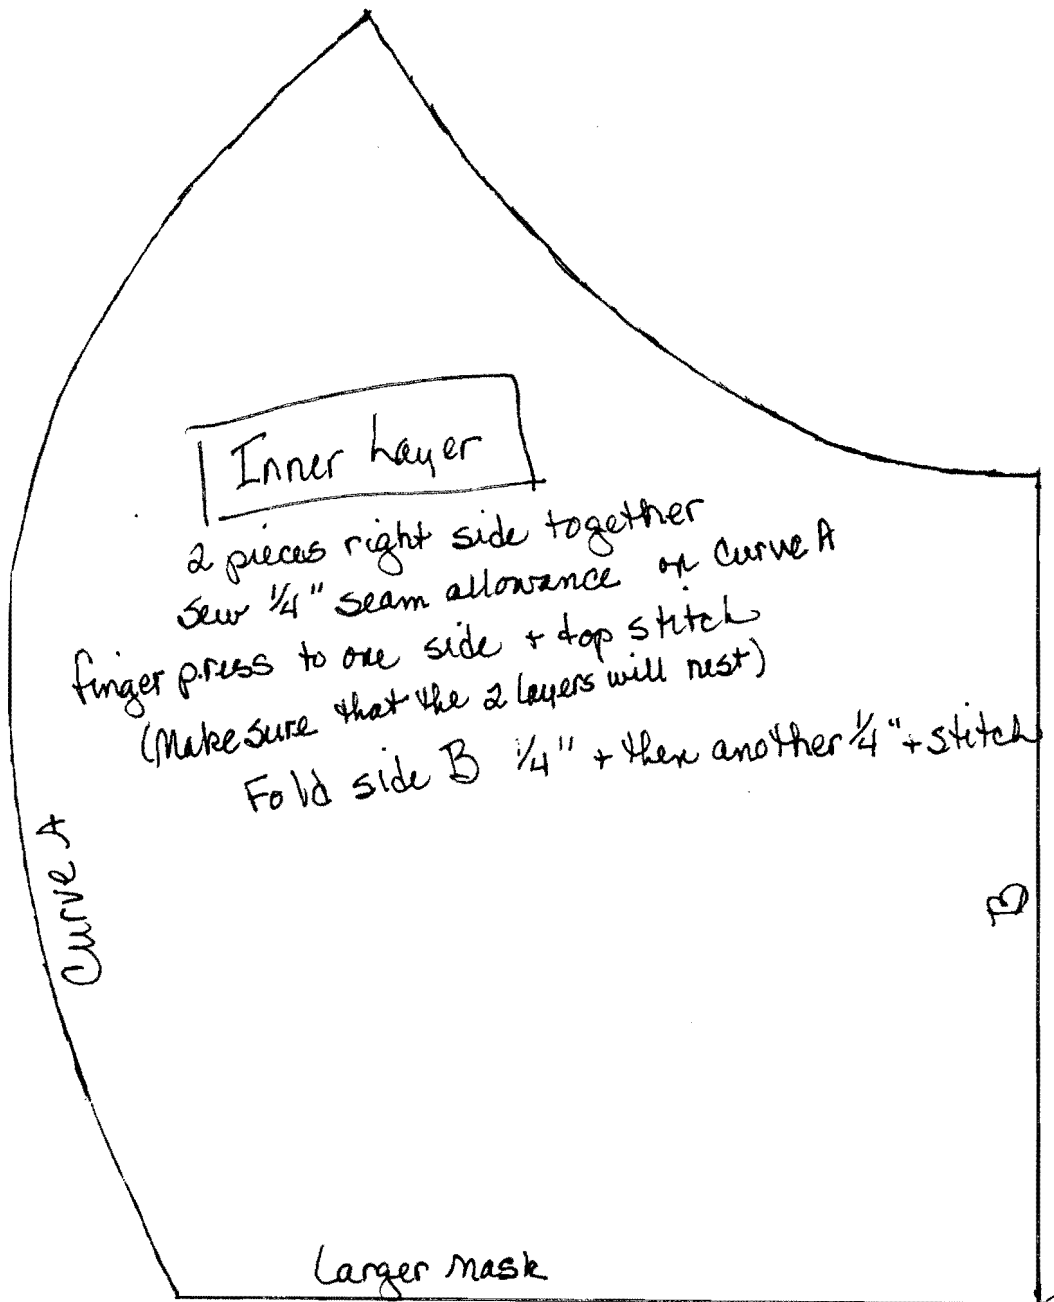 Inner Layer
2 pieces right side together
sew 1/4" seam allowance on Curve A
finger press to one side + top stitch
(Make sure that the 2 layers will nest)
Fold side B 1/4" + then another 1/4" + stitch
Curve A
B
Larger Mask